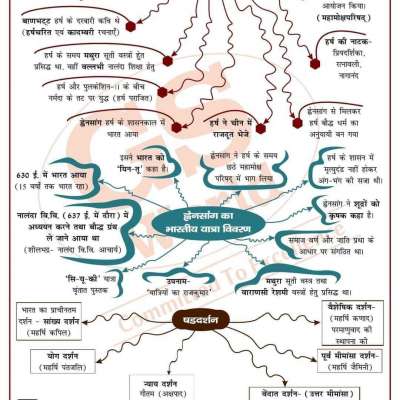 आयोजन किया।
(महामोक्षपरिषद्)
बाणभट्ट हर्ष के दरबारी कवि थे
(हर्षचरित एवं कादम्बरी रचनाएँ)
हर्ष की नाटक-
प्रियदर्शिका,
रत्नावली,
नागानंद
हर्ष के समय मथुरा सूती वस्त्रों हेतु
प्रसिद्ध था, वहीं वल्लभी नालंदा शिक्षा हेतु
हर्ष और पुलकेशिन-II के बीच
नर्मदा के तट पर युद्ध (हर्ष पराजित)
ह्वेनसांग के शासनकाल में
भारत आया
हर्ष ने चीन में
राजदूत भेजे
ह्वेनसांग से मिलकर
हर्ष बौद्ध धर्म का
अनुयायी बन गया
630 ई. में भारत आया
(15 वर्षों तक भारत रहा)
इसने भारत को
"यिन-तू" कहा है।
ह्वेनसांग ने हर्ष के समय
छठे महामोक्ष
परिषद् में भाग लिया
हर्ष के शासन में
मृत्युदंड नहीं होकर
अंग-भंग की सजा थी।
नालन्दा वि.वि. (637 ई. में दौरा) में
अध्ययन करने तथा बौद्ध ग्रंथ
ले जाने आया था
(शीलभद्र- नालंदा वि.वि. आचार्य)
ह्वेनसांग का
भारतीय यात्रा विवरण
ह्वेनसांग ने शूद्रों को
कृषक कहा है।
समाज वर्ण और जाति प्रथा के
आधार पर संगठित था।
"सि-यू-की" यात्रा
वृतांत पुस्तक
उपनाम-
"यात्रियों का राजकुमार"
मथुरा सूती वस्त्र तथा
वाराणसी रेशमी वस्त्रों हेतु प्रसिद्ध था।
षड्दर्शन
भारत का प्राचीनतम
दर्शन - सांख्य दर्शन
(महर्षि कपिल)
वैशेषिक दर्शन-
(महर्षि कणाद)
परमाणुवाद की
स्थापना की
योग दर्शन
(महर्षि पतंजलि)
पूर्व मीमांसा दर्शन-
(महर्षि जैमिनी)
न्याय दर्शन
गौतम (अक्षपाद)
वेदांत दर्शन- (उत्तर मीमांसा)